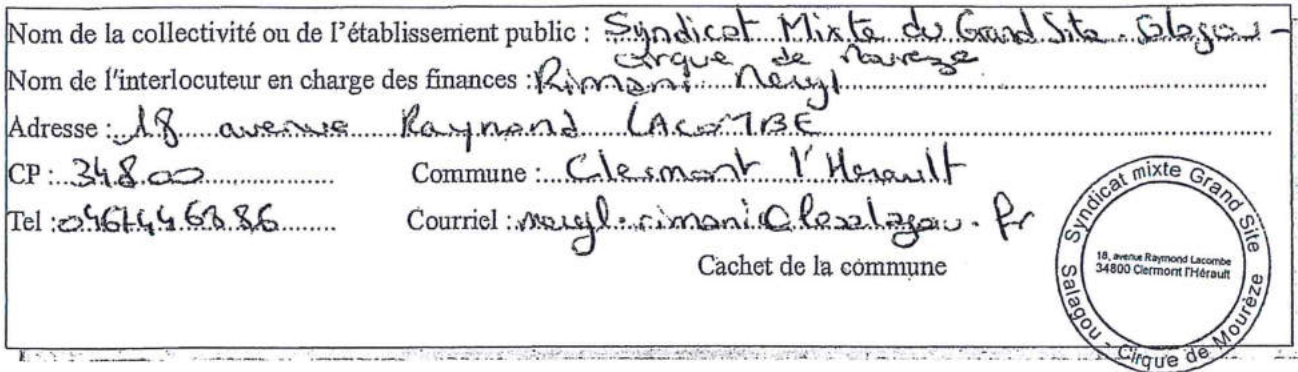 Nom de la collectivité ou de l'établissement public : Syndicat Mixte du Grand Site Salagou -
Cirque de Mourèze
Nom de l'interlocuteur en charge des finances : Rimani Meryl
Adresse : 18 avenue Raymond LACOMBE
CP : 34800 Commune : Clermont l'Herault
Tel : 0467446886 Courriel : meryl.rimani@lesalagou.fr
Cachet de la commune
Syndicat mixte Grand Site
18, avenue Raymond Lacombe
34800 Clermont l'Hérault
Salagou - Cirque de Mourèze